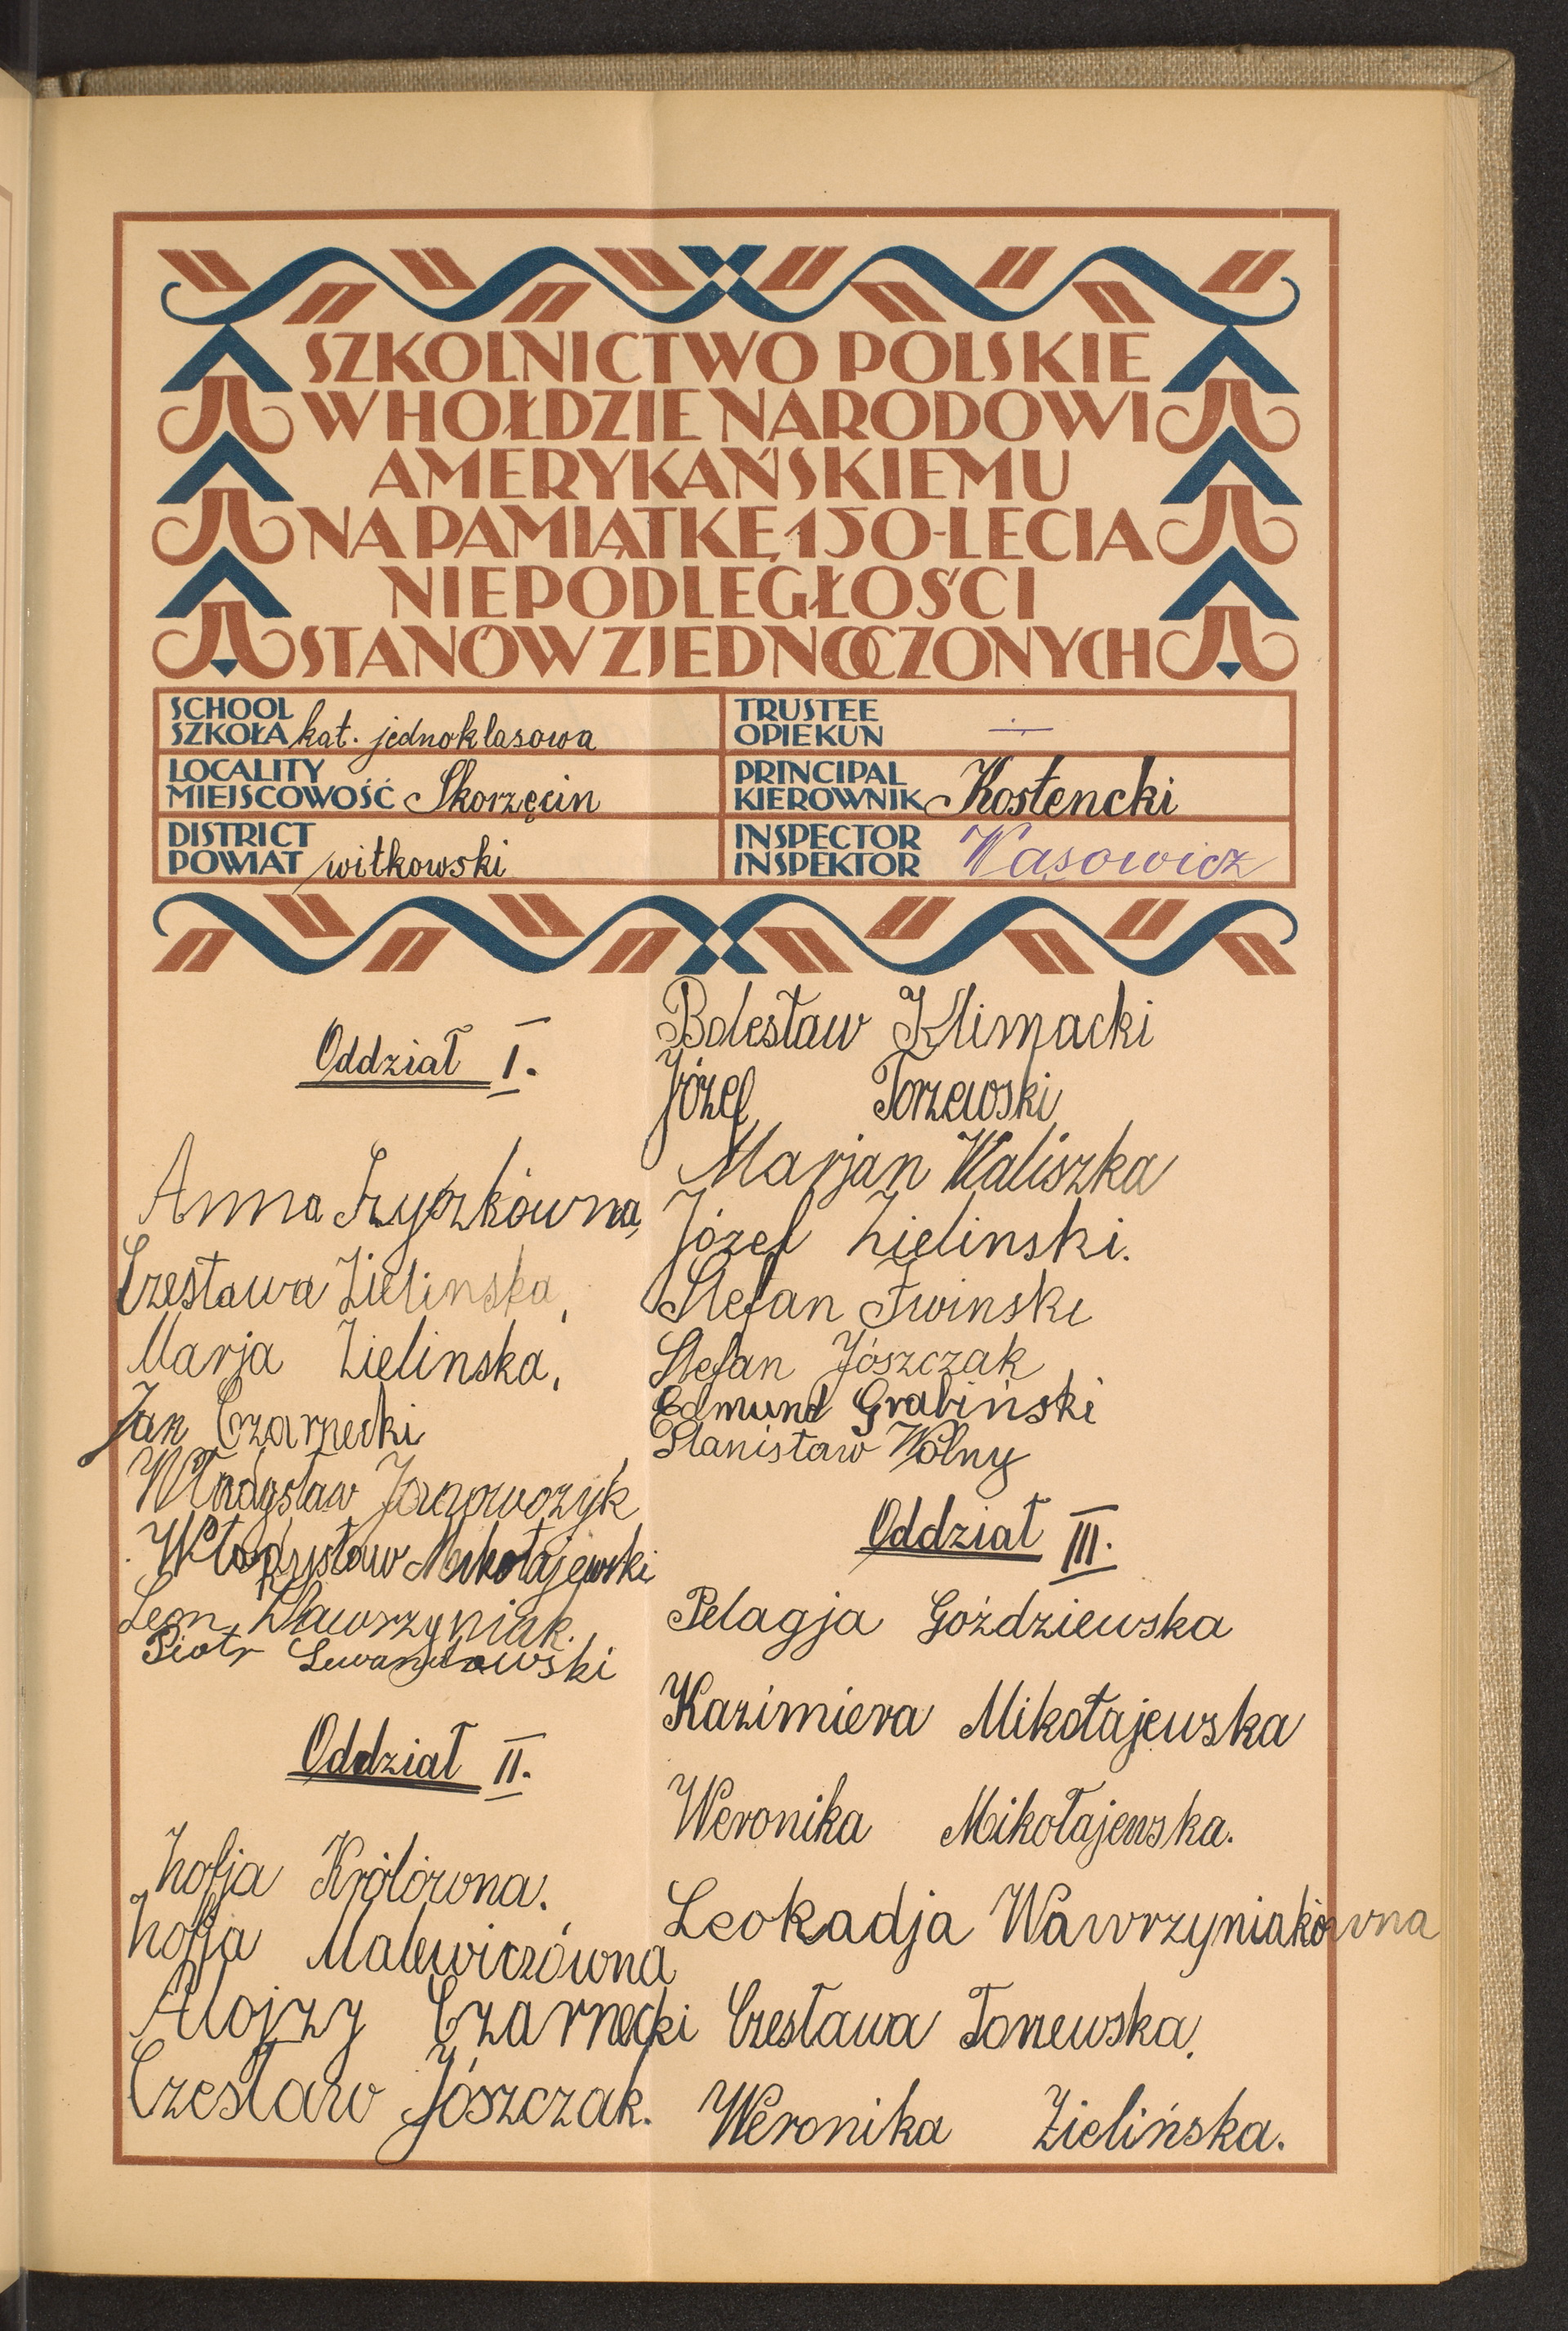 SZKOLNICTWO POLSKIE
W HOŁDZIE NARODOWI
AMERYKAŃSKIEMU
NA PAMIĄTKĘ 150-LECIA
NIEPODLEGŁOŚCI
STANÓW ZJEDNOCZONYCH
SCHOOL
SZKOŁA kat. jednoklasowa
LOCALITY
MIEJSCOWOŚĆ Skorzęcin
DISTRICT
POWIAT witkowski
TRUSTEE
OPIEKUN —
PRINCIPAL
KIEROWNIK Kostencki
INSPECTOR
INSPEKTOR Wąsowicz
Oddział I.
Anna
Czesława Zielinska,
Marja Zielinska,
Jan Czarnecki
Władysław Janowczyk
Władzysław Mikołajewski
Leon Wawrzyniak.
Piotr Lewandowski
Oddział II.
Zofja Królówna.
Zofja Malewiczówna
Alojzy Czarnecki
Czesław Jószczak.
Bolesław Klimacki
Józef Torzewski
Marjan Waliszka
Józef Zielinski.
Stefan Iwinski
Stefan Jószczak
Edmund Grabiński
Stanisław Wolny
Oddział III.
Pelagja Goździewska
Kazimiera Mikołajewska
Weronika Mikołajewska.
Leokadja Wawrzyniakówna
Czesława Torzewska.
Weronika Zielińska.